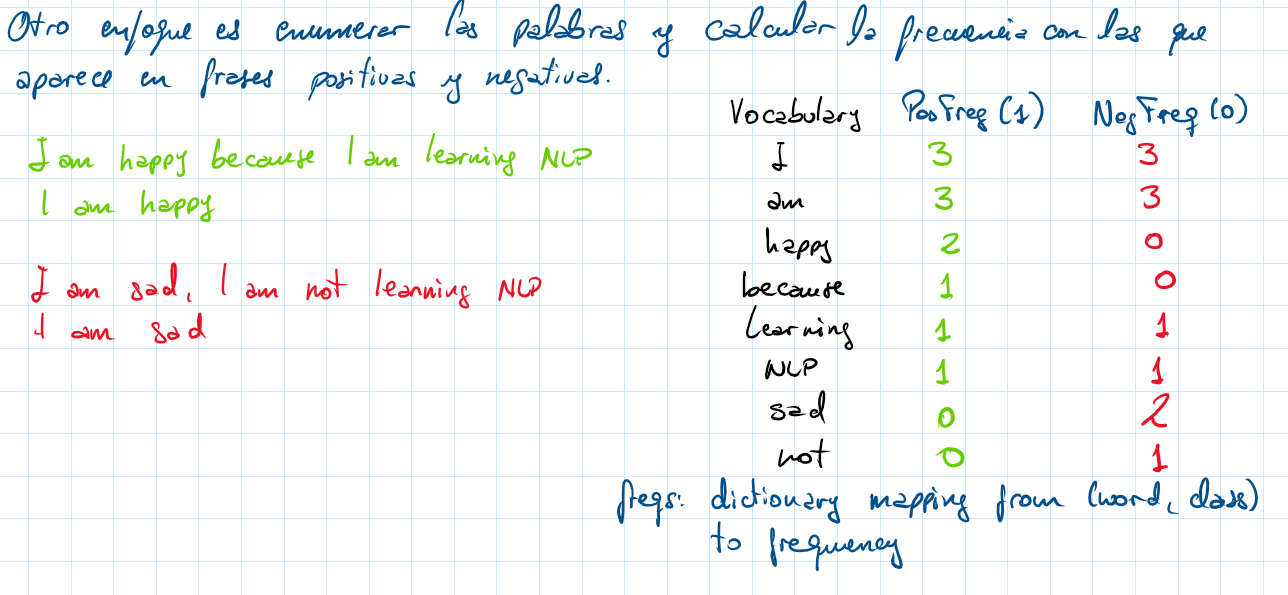 Otro enfoque es enumerar las palabras y calcular la frecuencia con las que
aparece en frases positivas y negativas.
I am happy because I am learning NLP
I am happy
I am sad, I am not learning NLP
I am sad
Vocabulary PosFreq (1) NegFreq (0)
I 3 3
am 3 3
happy 2 0
because 1 0
learning 1 1
NLP 1 1
sad 0 2
not 0 1
freqs: dictionary mapping from (word, class)
to frequency